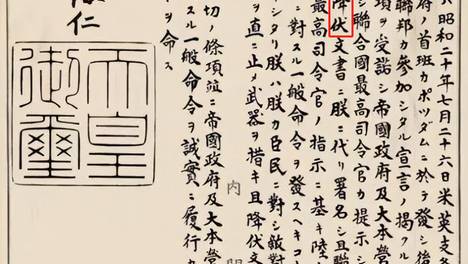 ハ昭和二十年七月二十六日米英支各
府ノ首班カポツダムニ於テ發シ後
聯邦カ參加シタル宣言ノ掲クル
項ヲ受諾シ帝國政府及大本營
シ聯合國最高司令官カ提示シ
降伏文書ニ朕ニ代リ署名シ且聯
最高司令官ノ指示ニ基キ陸
ニ對スル一般命令ヲ發スヘキコト
シタリ朕ハ朕カ臣民ニ對シ敵對
ヲ直ニ止メ武器ヲ措キ且降伏文
内閣
切ノ條項竝ニ帝國政府及大本營
スル一般命令ヲ誠實ニ履行セ
命ス
仁
天皇
御璽